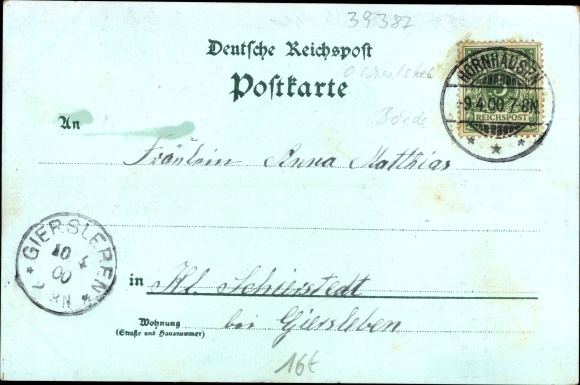 39387
Deutsche Reichspost
Postkarte
Oschersleben
Börde
HORNHAUSEN
9.4.00 7-8N
5
REICHSPOST
An
Fräulein Anna Matthias
GIERSLEBEN
10 4
00
N
in Kl. Schierstedt
Wohnung
(Straße und Hausnummer)
bei Giersleben
16t